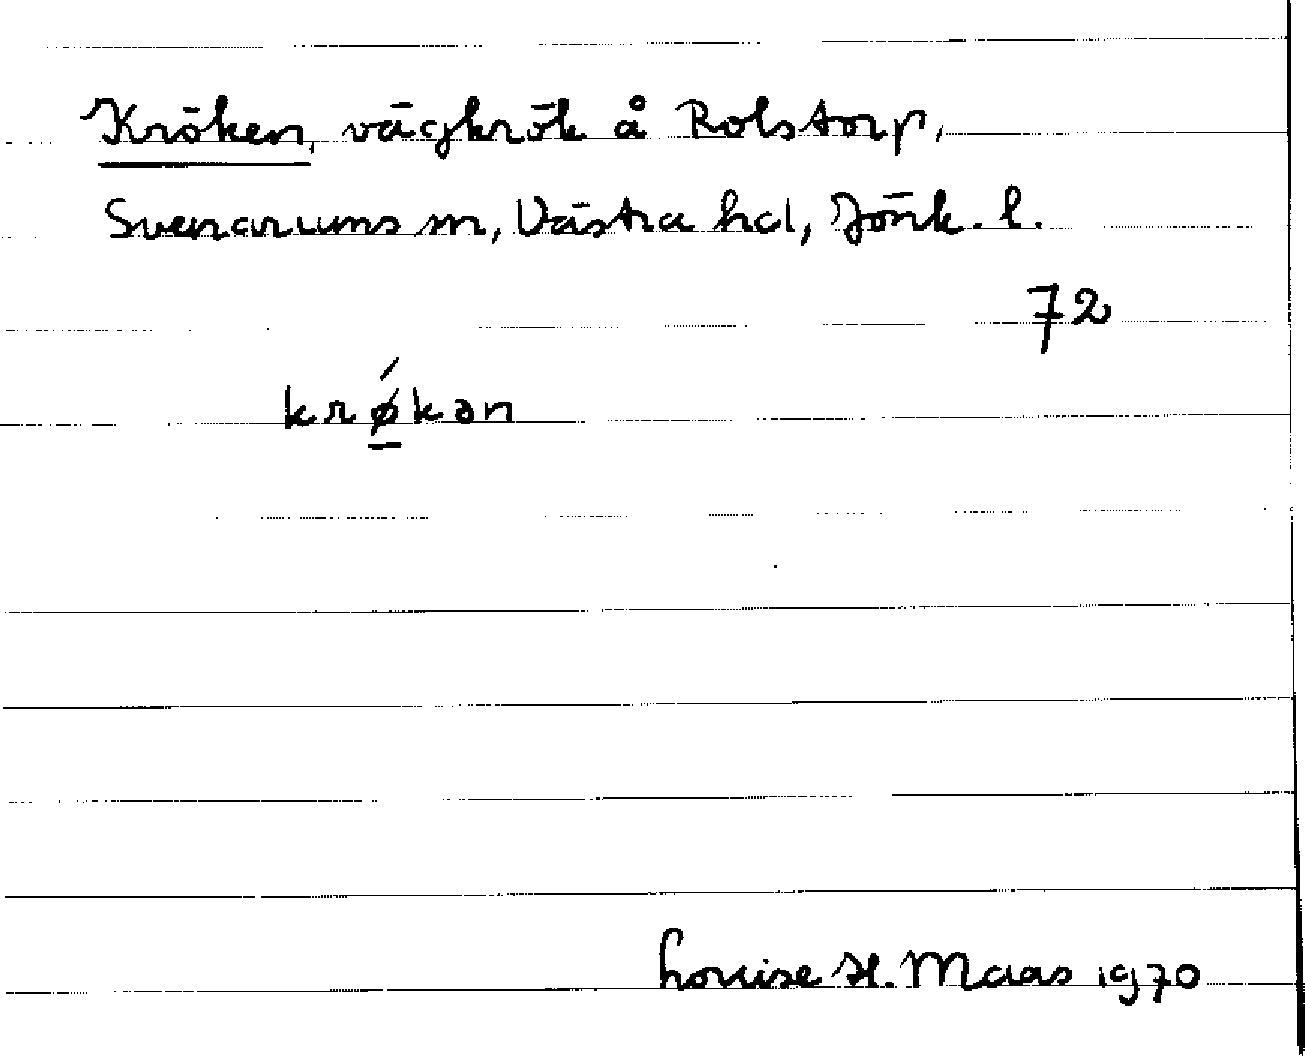 Kröken, vägkrök å Rolstorp,
Svenarums sn, Västra hd, Jönk. l.
72
krǿ̲kən
Louise H. Maas 1970